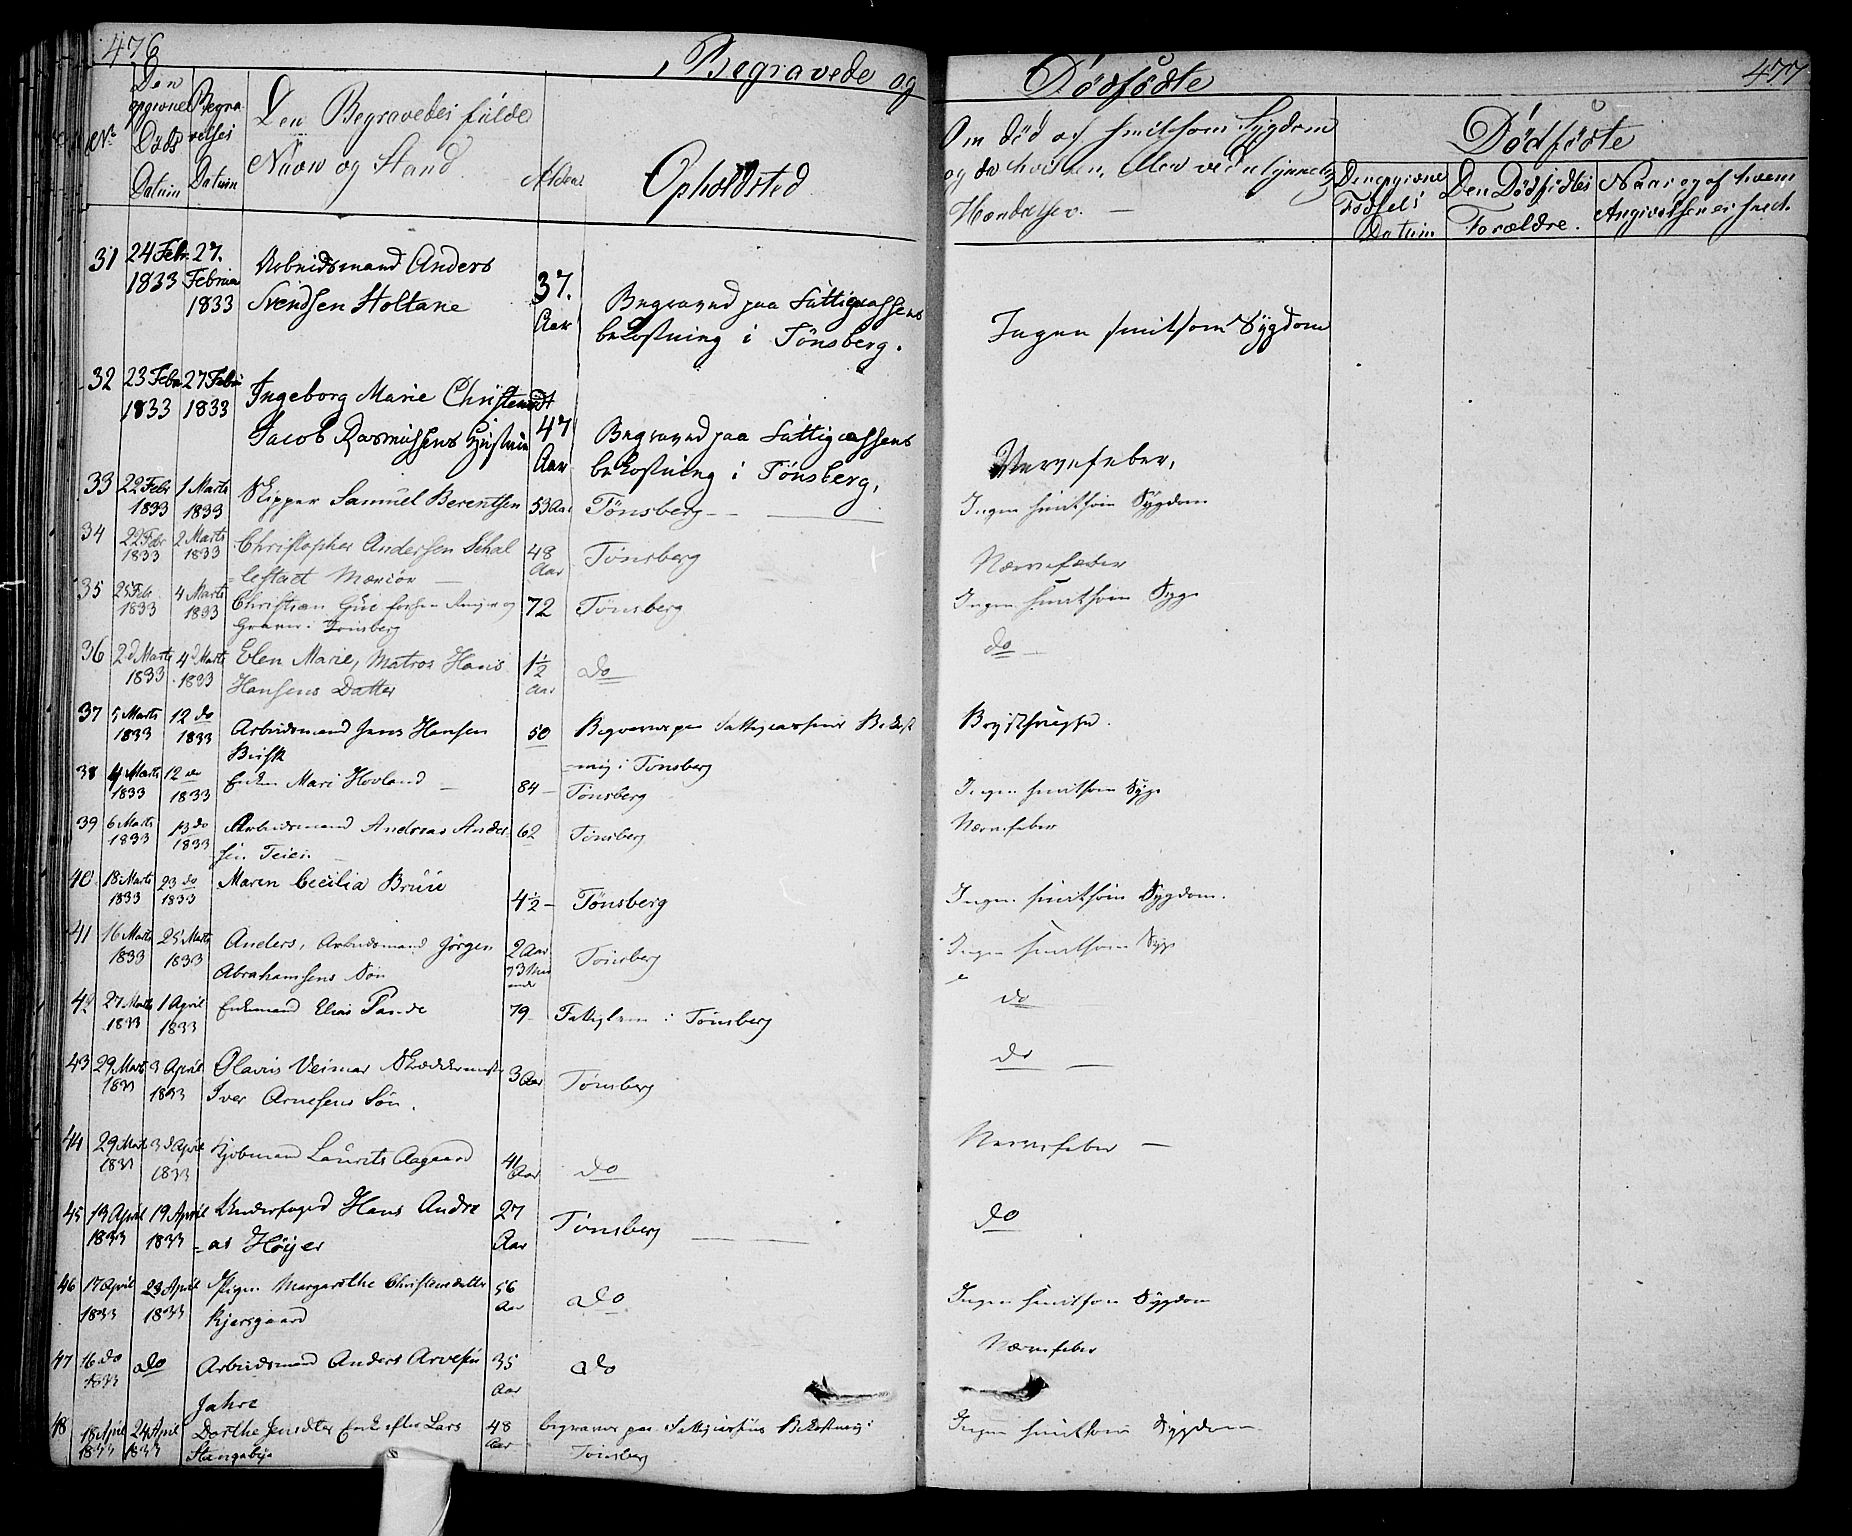 476
Begravede og
Dødfødte
477
No
Den opgivne Døds Datum
Begravelses Datum
Den Begravedes fulde
Navn og Stand
Alder
Opholdsted
Om død af smitsom Sygdom
og da hvilken, eller ved ulykkelig
Hændelse. —
Dødfødte
Den opgivne Fødsels Datum
Den Dødfødtes Forældre.
Naar og af hvem Angivelsen er skeed.
31 24 Febr. 1833 27. Februar 1833 Arbeidsmand Anders
Svendsen Holtane 37. Aar Begraved paa Fattigcassens
bekostning i Tønsberg. Ingen smitsom Sygdom
32 23 Febr 1833 27 Febr 1833 Ingeborg Marie Christensdt
Jacob Rasmussens Hustrue 47 Aar Begraved paa Fattigcassens
bekostning i Tønsberg. Nervefeber,
33 22 Febr 1833 1 Marts 1833 Skipper Samuel Berentsen 53 Aar Tønsberg — Ingen smitsom Sygdom
34 22 Febr 1833 2 Marts 1833 Christopher Andersen Schal
lestad 48 Aar Tønsberg Nervefeber
35 25 Febr. 1833 4 Marts 1833 Christian Ringer og
Graver i Tønsberg 72 Tønsberg Ingen smitsom Syge
36 2 d Marts 1833 4 d Marts 1833 Elen Marie, Matros Hans
Hansens Datter 1½ Aar do do —
37 5 Marts 1833 12 do 1833 Arbeidsmand Jens Hansen
50 Begraves paa Fattigcassens Bekost
ning i Tønsberg Brystsyge.
38 4 Marts 1833 12 do 1833 Enken Mari Hovland — 84 — Tønsberg Ingen smitsom Syge
39 6 Marts 1833 13 do 1833 Arbeidsmand Andreas Ander
sen Teien 62 Tønsberg Nervefeber
40 18 Marts 1833 23 do 1833 Maren Cecilia Bruu 4½ — Tønsberg Ingen smitsom Sygdom.
41 16 Marts 1833 25 Marts 1833 Anders, Arbeidsmand Jørgen
Abrahamsens Søn 2 Aar Tønsberg Ingen smitsom Syge
42 27 Marts 1833 1 April 1833 Enkemand Elias 79 Fattiglem i Tønsberg do
43 29 Marts 1833 3 April 1833 Olavus Veimar
Iver Arnesens Søn. 3 Aar Tønsberg do —
44 29 Marts 1833 3 d April 1833 Kjøbmand Laurits Aagaard 41 Aar do Nervefeber —
45 13 April 1833 19 April 1833 Underfoged Hans Andre
as Høyer 27 Aar Tønsberg — do
46 17 April 1833 23 April 1833 Pigen Margarethe Christensdatter
Kjersgaard 56 Aar do Ingen smitsom Sygdom
47 16 do 1833 do Arbeidsmand Anders Arvesen
Jahre 35 Aar do Nervefeber
48 18 April 1833 24 April 1833 Dorthe Jensdtter Enke efter Lars
48 Aar begraves paa Fattigcassens Bekostning i
Tønsberg Ingen smitsom Sygdom